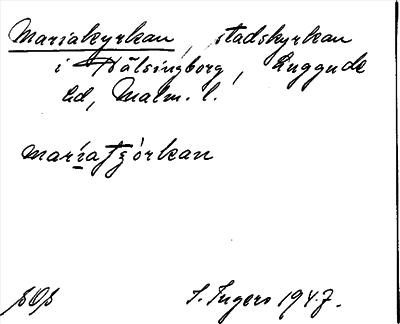 Mariakyrkan, stadskyrkan
i Hälsingborg, Luggude
hd, Malm. l.
maríatȿórkan
SOS
S. Ingers 1947.